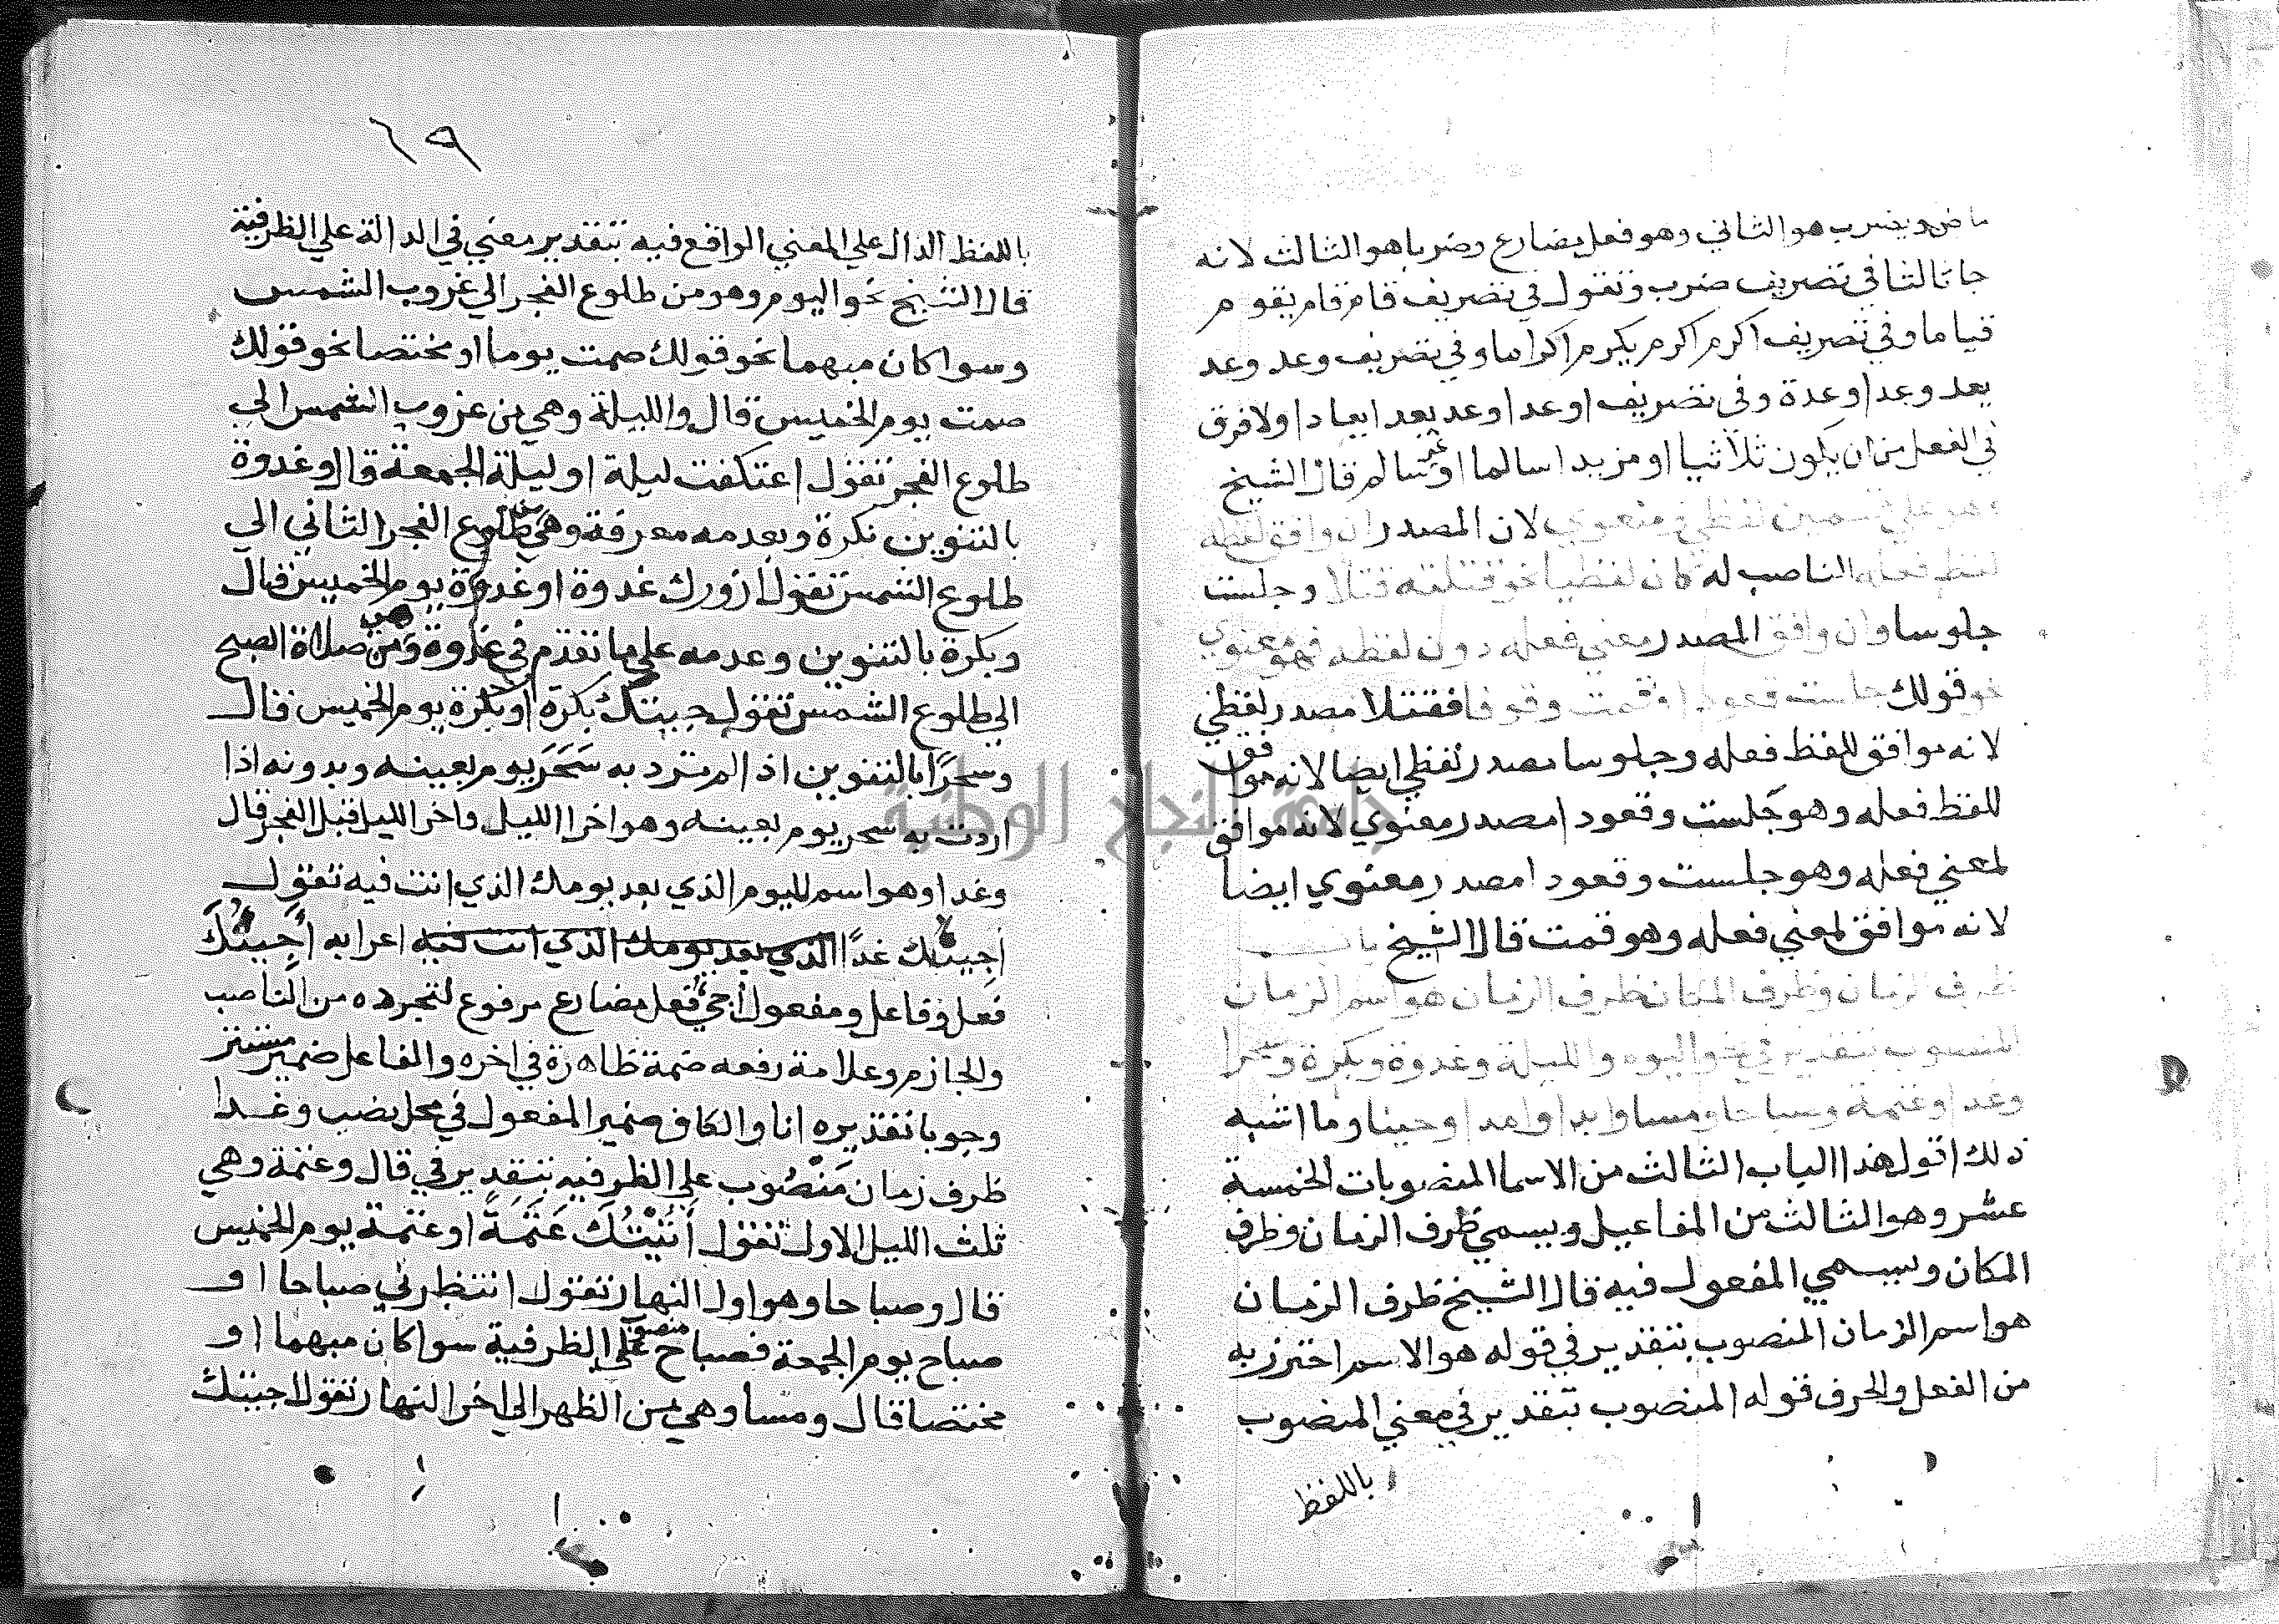 ماض ويضرب هو الثاني وهو فعل مضارع وضربا هو الثالث لانه
جا ثالثا في تصريف ضرب وتقول في تصريف قام قام يقوم
قياما وفي تصريف اكرم اكرم يكرم اكراما وفي تصريف وعد وعد
يعد وعدا وعدة وفي تصريف اوعد اوعد يعد ايعادا ولا فرق
في الفعل من ان يكون ثلاثيا او مزيدا سالما او غير سالم قال الشيخ
وهو على قسمين لفظي ومعنوي لان المصدر ان وافق لفظه
لفظ فعله الناصب له كان لفظيا نحو قتلته قتلا وجلست
جلوسا وان وافق المصدر معني فعله دون لفظه فهو معنوي
نحو قولك جلست قعودا وقمت وقوفا فقتلا مصدر لفظي
لانه موافق للفظ فعله وجلوسا مصدر لفظي ايضا لانه موافق
للفظ فعله وهو جلست وقعودا مصدر معنوي لانه موافق
لمعني فعله وهو جلست وقعودا مصدر معنوي ايضا
لانه موافق لمعني فعله وهو قمت قال الشيخ باب
ظرف الزمان وظرف المكان ظرف الزمان هو اسم الزمان
المنصوب بتقدير في نحو اليوم والليلة وغدوة وبكرة وسحرا
وغدا وعتمة وصباحا ومسا وابدا وامدا وحينا وما اشبه
ذلك اقول هذا الباب الثالث من الاسما المنصوبات الخمسة
عشر وهو الثالث من المفاعيل ويسمي ظرف الزمان وظرف
المكان ويسمي المفعول فيه قال الشيخ ظرف الزمان
هو اسم الزمان المنصوب بتقدير في قوله هو الاسم احترز به
من الفعل والحرف قوله المنصوب بتقدير في معني المنصوب
باللفظ
١٩
باللفظ الدال علي المعني الواقع فيه بتقدير معني في الدالة علي الظرفية
قال الشيخ نحو اليوم وهو من طلوع الفجر الي غروب الشمس
وسوا كان مبهما نحو قولك صمت يوما او مختصا نحو قولك
صمت يوم الخميس قال والليلة وهي من غروب الشمس الي
طلوع الفجر تقول اعتكفت ليلة او ليلة الجمعة قال وغدوة
بالتنوين نكرة وبعدمه معرفة وهي من طلوع الفجر الثاني الي
طلوع الشمس تقول ازورك غدوة او غدوة يوم الخميس قال
وبكرة بالتنوين وعدمه علي ما تقدم في غدوة وهي من صلاة الصبح
الي طلوع الشمس تقول جيتك بكرة او بكرة يوم الخميس قال
وسحرًا بالتنوين اذا لم ترد به سَحَر يوم بعينه وبدونه اذا
اردت به سحر يوم بعينه وهو اخر الليل واخر الليل قبل الفجر قال
وغدا وهو اسم لليوم الذي بعد يومك الذي انت فيه تقول
اجيئك غدًا الذي بعد يومك الذي انت فيه اعرابه اجيئك
فعل وفاعل ومفعول اجي فعل مضارع مرفوع لتجرده من الناصب
والجازم وعلامة رفعه ضمة ظاهرة في اخره والفاعل ضمير مستتر
وجوبا تقديره انا والكاف ضمير المفعول في محل نصب وغدا
ظرف زمان مَنْصُوب علي الظرفيه بتقدير في قال وعتمة وهي
ثلث الليل الاول تقول أتيْتُكَ عَتَمَةً او عتمة يوم الخميس
قال وصباحا وهو اول النهار تقول انتظرني صباحا او
صباح يوم الجمعة فصباح منصوب علي الظرفية سوا كان مبهما او
مختصا قال ومسا وهي من الظهر الي اخر النهار تقول اجيئك
جامعة النجاح الوطنية